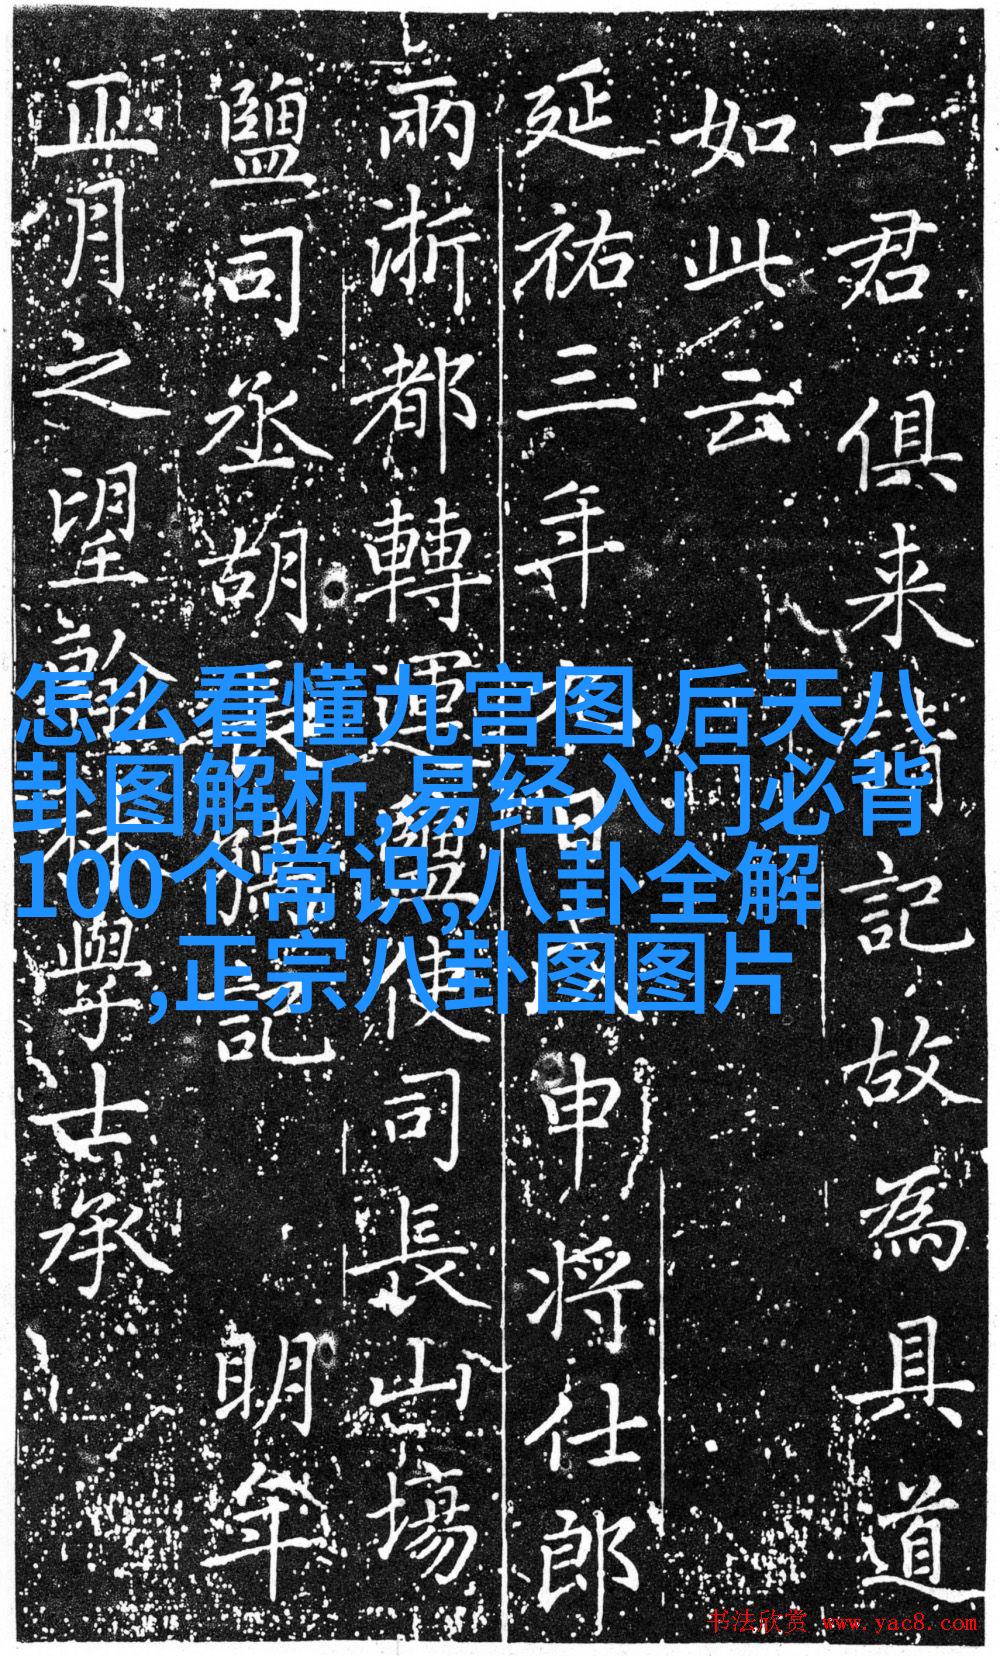 君俱来記故為具道
如此云
延祐三年申将仕郎
兩浙都轉運鹽使司長山場
鹽司丞胡記明年
正月之望翰林學士承
怎么看懂九宫图,后天八
卦图解析,易经入门必背
100个常识,八卦全解
,正宗八卦图图片
书法欣赏 www.yac8.com